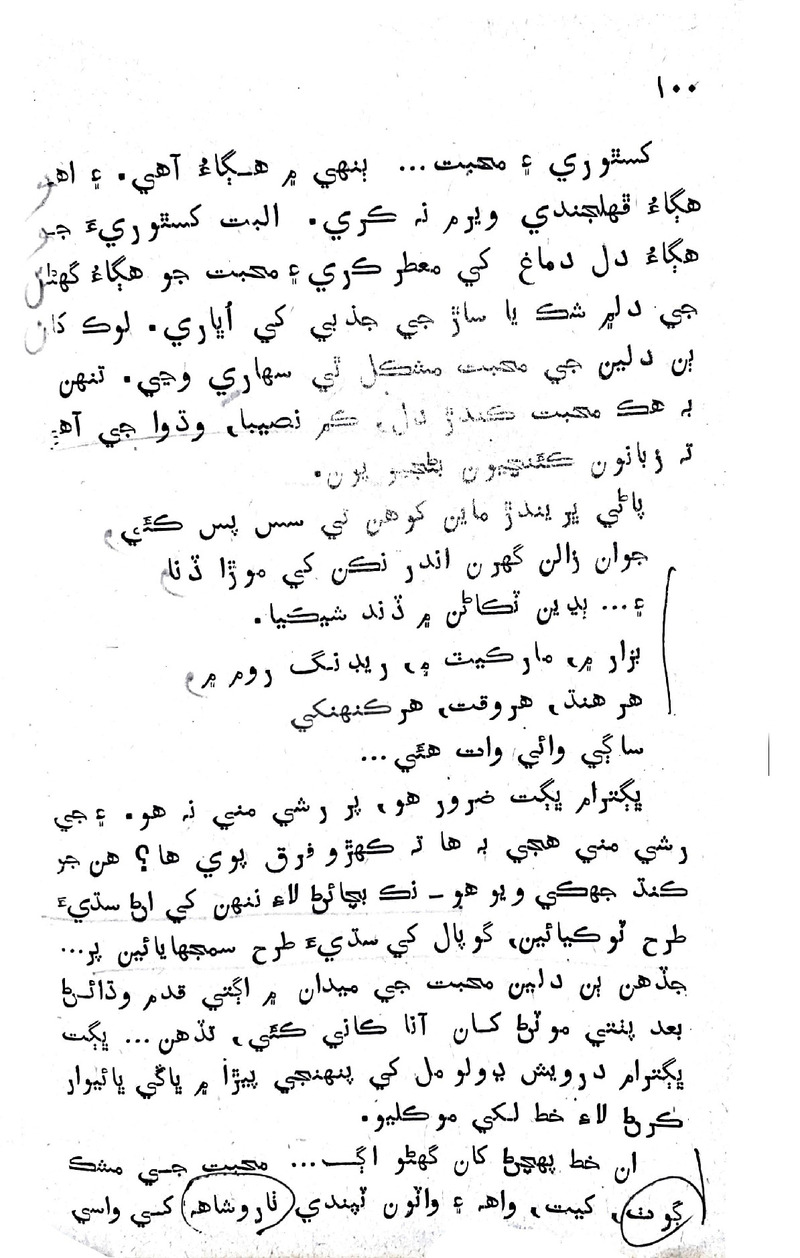 ١٠٠
ڪستوري ۽ محبت... ٻنهي ۾ هڳاءُ آهي. ۽ اهو
هڳاءُ ڦهلجندي ويرم نہ ڪري. البت ڪستوريءَ جو
هڳاءُ دل دماغ کي معطر ڪري ۽ محبت جو هڳاءُ گهڻن
جي دلين۾ شڪ يا ساڙ جي جذبي کي اُڀاري. لوڪ کان
ٻن دلين جي محبت مشڪل ٿي سهاري وڃي. تنهن
۾ هڪ محبت ڪندڙ دل، ڪم نصيبا، وڌوا جي آهي
تہ زبانون ڪئنچيون بڻجيو پون.
پاڻي ڀريندڙ ماين کوهن تي سس پس ڪئي،
جوان زالن گهرن اندر نڪن کي موڙا ڏنا،
۽... ٻڍين ٽڪاڻن ۾ ڏند شيڪيا.
بزار ۾، مارڪيٽ ۾، ريڊنگ روم ۾،
هر هنڌ، هروقت، هرڪنهنکي
ساڳي وائي وات هئي...
ڀڳترام ڀڳت ضرور هو، پر رشي مني نہ هو. ۽ جي
رشي مني هجي بہ ها تہ ڪهڙو فرق پوي ها؟ هن جو
ڪنڌ جهڪي ويو هو ـ نڪ بچائڻ لاءِ ننهن کي اڻ سڌيءَ
طرح ٽوڪيائين، گوپال کي سڌيءَ طرح سمجهايائين پر...
جڏهن ٻن دلين محبت جي ميدان ۾ اڳتي قدم وڌائڻ
بعد پنتي موٽڻ کان آنا ڪاني ڪئي، تڏهن... ڀڳت
ڀڳترام درويش ڍولو مل کي پنهنجي پيڙا ۾ ڀاڱي ڀائيوار
ڪرڻ لاءِ خط لکي موڪليو.
ان خط پهچڻ کان گهڻو اڳ... محبت جي مشڪ
ڳوٺ، کيت، واهہ ۽ واٽون ٽپندي ٺاروشاهہ کي واسي